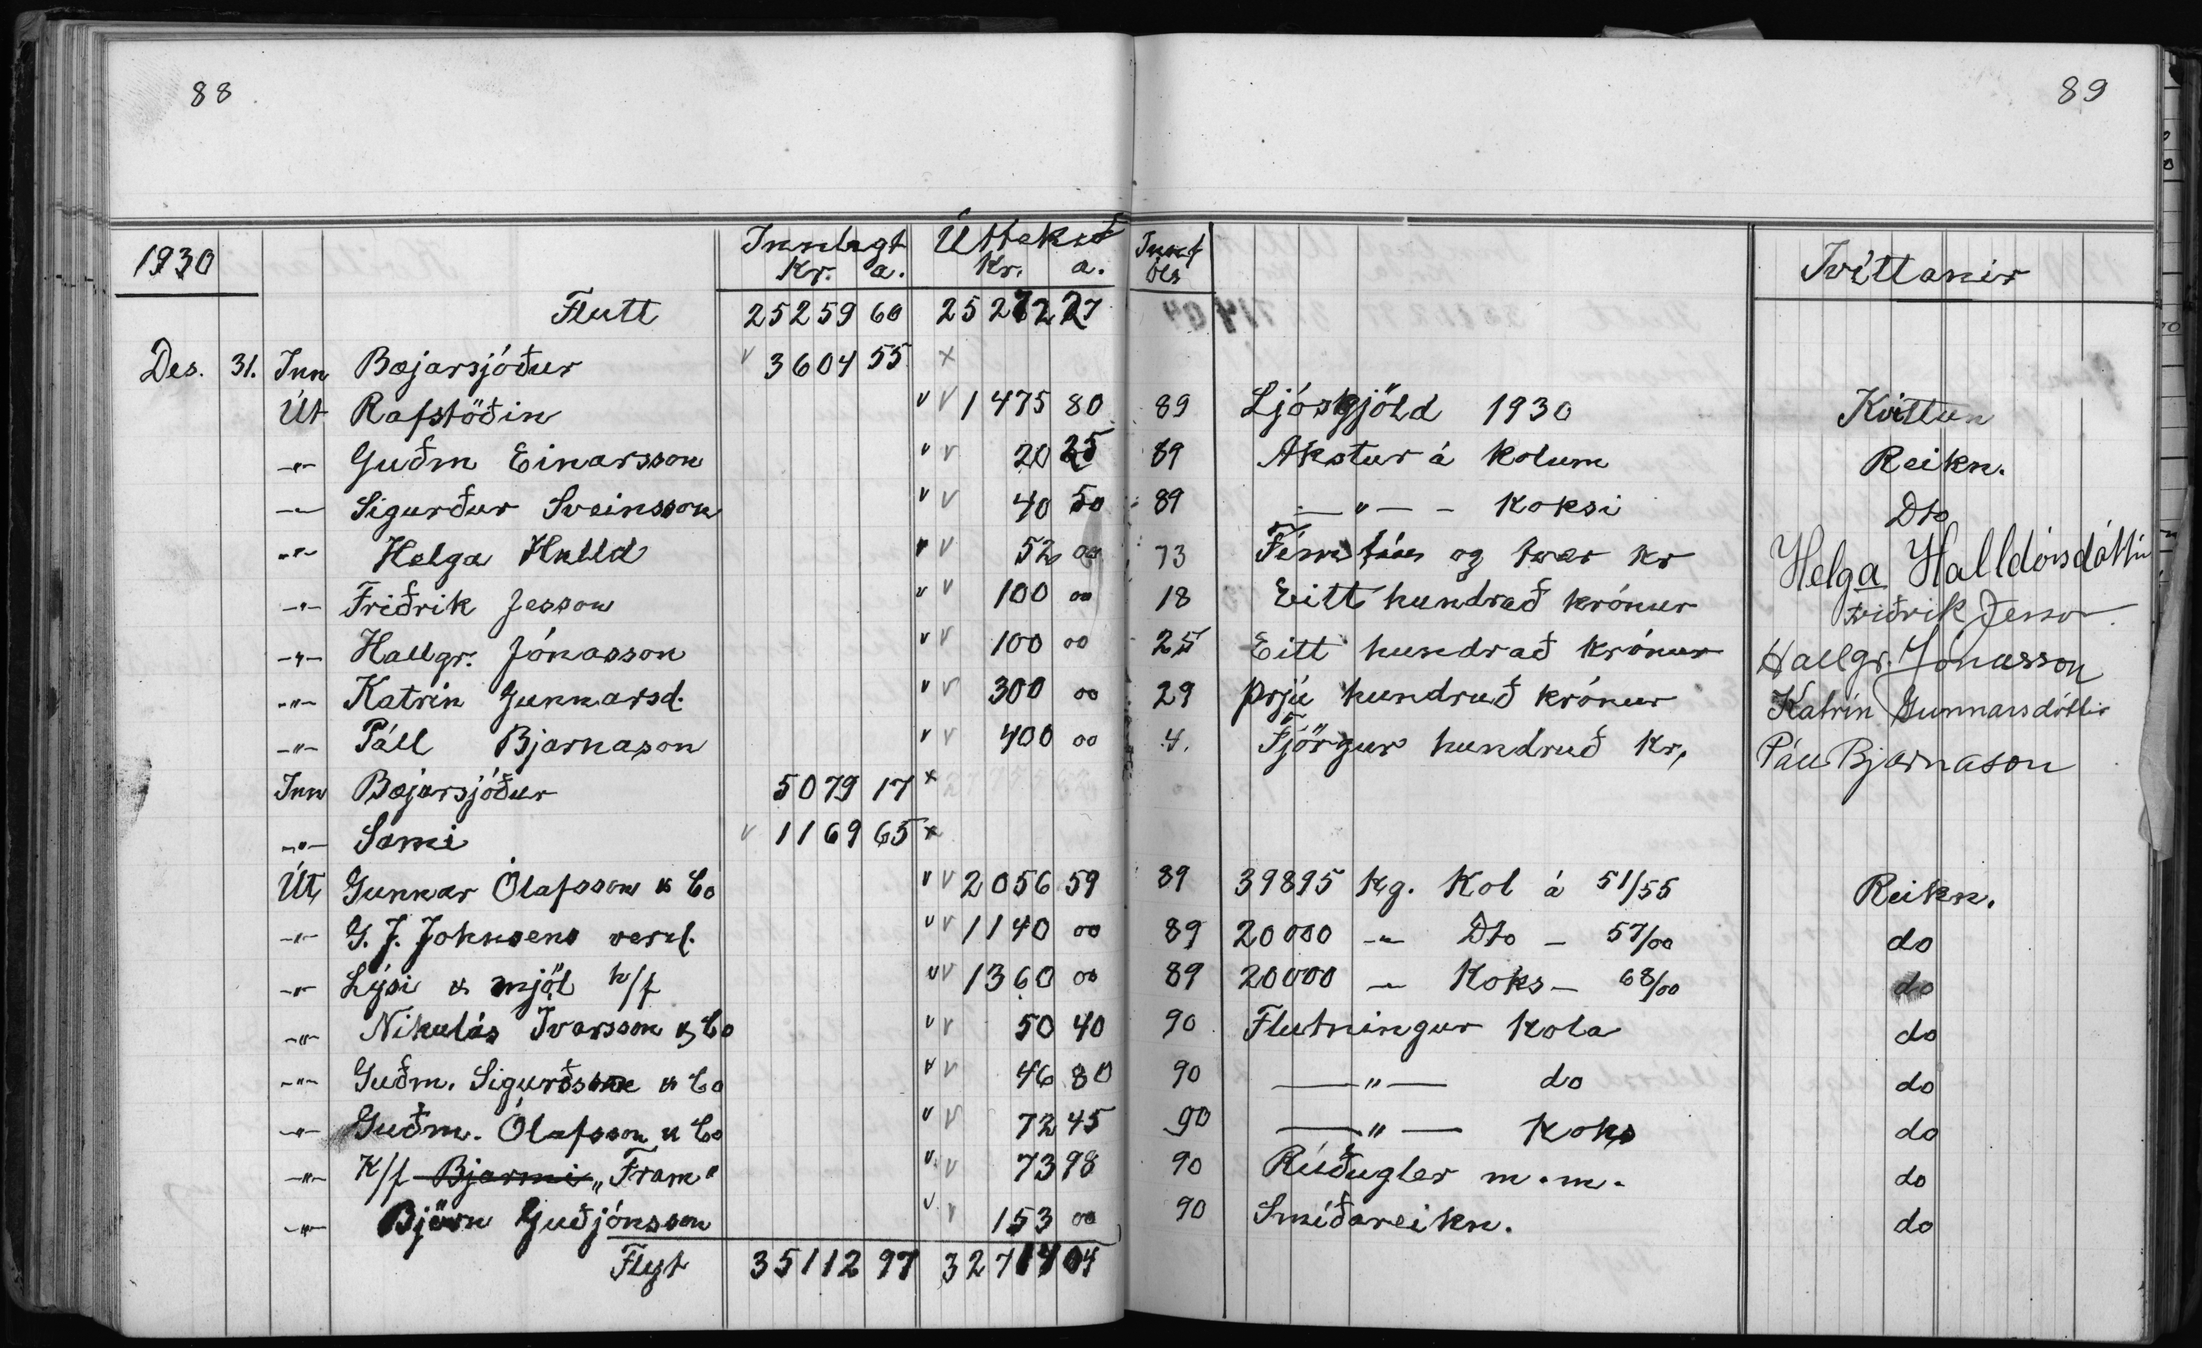 88
89
1930 Innlagt Úttekið Kvittanir
kr. a. kr. a.
Flutt 25259 60 25272 27
Des. 31. Inn Bæjarsjóður 3604 55
Út Rafstöðin 1475 80 89 Ljósgjöld 1930 Kvittun
-"- Guðm Einarsson 20 25 89 Akstur á kolum Reikn.
-"- Sigurður Sveinsson 40 50 89 -"- - Koksi Dto
-"- Helga Halld 52 00 73 og tvær kr Helga Halldórsdóttir
-"- Friðrik Jesson 100 00 18 Eitt hundrað krónur Friðrik Jesson
-"- Hallgr. Jónasson 100 00 25 Eitt hundrað krónur Hallgr. Jónasson
-"- Katrín Gunnarsd. 300 00 29 Þrjú hundruð krónur Katrín Gunnarsdóttir
-"- Páll Bjarnason 400 00 4. Fjögur hundruð kr, Páll Bjarnason
Inn Bæjarsjóður 5079 17
-"- Sami 1169 65
Út Gunnar Ólafsson & Co 2056 59 89 39895 kg. Kol á 51/55 Reikn.
-"- G. J. Johnsens verzl. 1140 00 89 20000 -"- Dto - 57/00 do
-"- Lýsi & mjöl h/f 1360 00 89 20000 -"- Koks - 68/00 do
-"- Nikulás Ívarsson & Co 50 40 90 Flutningur kola do
-"- Guðm. Sigurðsson & Co 46 80 90 -"- do do
-"- Guðm. Ólafsson & Co 72 45 90 -"- Koks do
-"- K/f Bjarmi „Fram" 73 98 90 Rúðugler m.m. do
-"- Björn Guðjónsson 153 00 90 Smíðareikn. do
Flyt 35112 97 32714 04